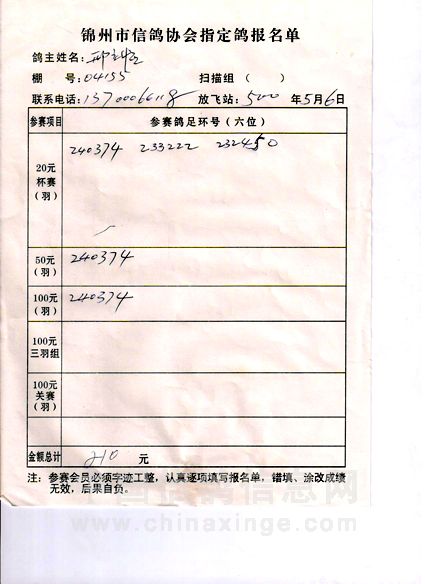 锦州市信鸽协会指定鸽报名单
鸽主姓名:
棚 号: 04155 扫描组 ( )
联系电话: 13700066118 放飞站: 500 年5月6日
参赛项目 参赛鸽足环号(六位)
20元 杯赛 (羽) 240374 233222 232450
50元 (羽) 240374
100元 (羽) 240374
100元 三羽组
100元 关赛 (羽)
金额总计 210 元
注: 参赛会员必须字迹工整,认真逐项填写报名单,错填、涂改成绩
无效,后果自负。
中国信鸽信息网
www.chinaxinge.com